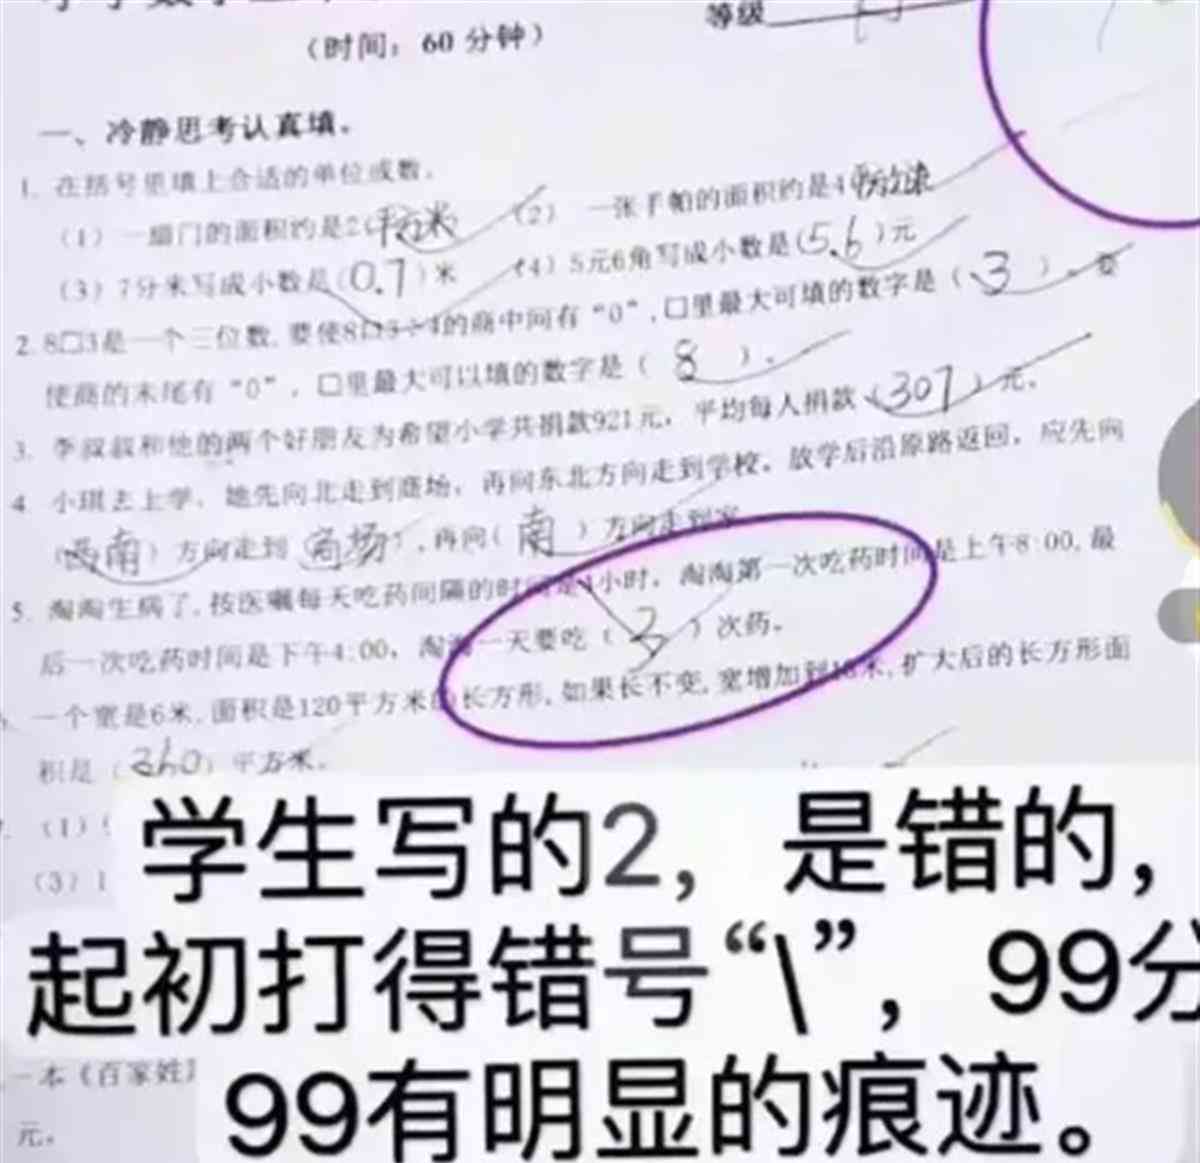 等级
（时间：60 分钟）
一、冷静思考认真填。
1. 在括号里填上合适的单位或数。
（1）一扇门的面积约是2（平方米 （2） 一张手帕的面积约是4
（3）7分米写成小数是（0.7）米 （4）5元6角写成小数是（5.6）元
2. 8□3是一个三位数,要使8□3÷4的商中间有“0”,□里最大可填的数字是（3）。要
使商的末尾有“0”，□里最大可以填的数字是（8）。
3. 李叔叔和他的两个好朋友为希望小学共捐款921元，平均每人捐款（307）元。
4 小琪去上学，她先向北走到商场，再向东北方向走到学校。放学后沿原路返回，应先向
（西南）方向走到（商场），再向（南）方向走到家
5. 淘淘生病了,按医嘱每天吃药间隔的时间是4小时，淘淘第一次吃药时间是上午8:00,最
后一次吃药时间是下午4:00，淘淘一天要吃（3）次药。
一个宽是6米,面积是120平方米的长方形,如果长不变,宽增加到18米,扩大后的长方形面
积是（360）平方米。
（1）
（3）1
学生写的2，是错的，
起初打得错号“\”，99分
一本《百家姓》
99有明显的痕迹。
元。